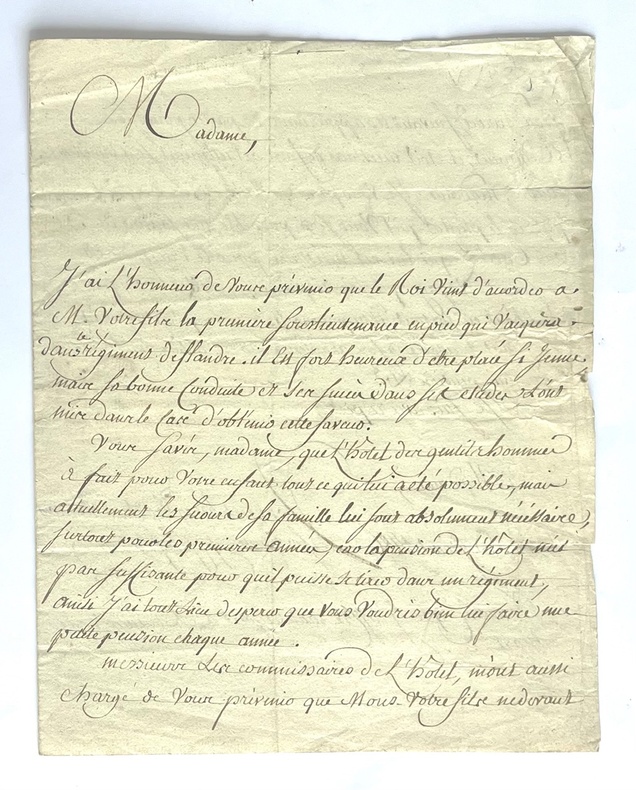 Madame,
J'ai L'honneur de Vous prévenir que le Roi Vient d'accorder a
M. Votre fils la premiere souslieutenance en pied qui Vaquera
dans le régiment de flandre. il Est fort heureux d'etre placé si Jeune
mais sa bonne Conduite et ses succès dans ses etudes L'ont
mis dans le Cas d'obtenir cette faveur.
Vous savés, madame, que L'hotel des gentils hommes
à fait pour Votre enfant tout ce qui lui à eté possible, mais
actuellement les secours de sa famille lui sont absolument nécessaires,
surtout pour les premieres années, car la pension de L'hotel n'est
pas suffisante pour qu'il puisse se tirer dans un régiment,
ainsi J'ai tout Lieu desperer que Vous Voudrés bien lui faire une
petite pension chaque année.
messieurs Les commissaires de L'hotel, m'ont aussi
chargé de Vous prévenir que Mons. Votre fils ne devant